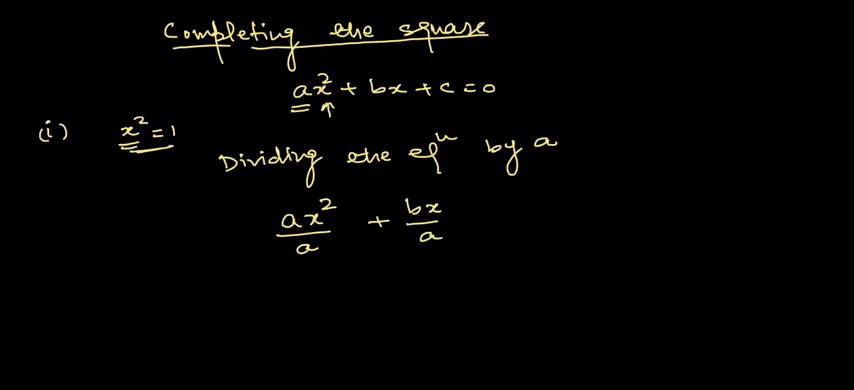 Completing the square
ax² + bx + c = 0
(i) x² = 1
Dividing the eqⁿ by a
ax²/a + bx/a